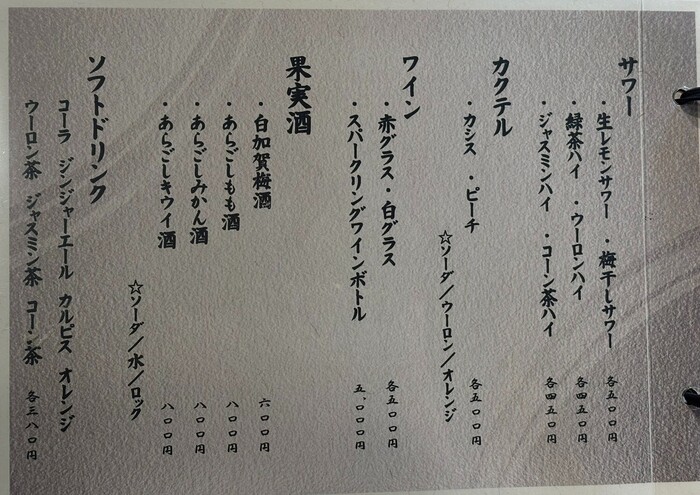 サワー
・生レモンサワー ・梅干しサワー 各五〇〇円
・緑茶ハイ ・ウーロンハイ 各四五〇円
・ジャスミンハイ ・コーン茶ハイ 各四五〇円
カクテル
・カシス ・ピーチ 各五〇〇円
☆ソーダ／ウーロン／オレンジ
ワイン
・赤グラス・白グラス 各五〇〇円
・スパークリングワインボトル 五、〇〇〇円
果実酒
・白加賀梅酒 六〇〇円
・あらごしもも酒 八〇〇円
・あらごしみかん酒 八〇〇円
・あらごしキウイ酒 八〇〇円
☆ソーダ／水／ロック
ソフトドリンク
コーラ ジンジャーエール カルピス オレンジ
ウーロン茶 ジャスミン茶 コーン茶 各三八〇円